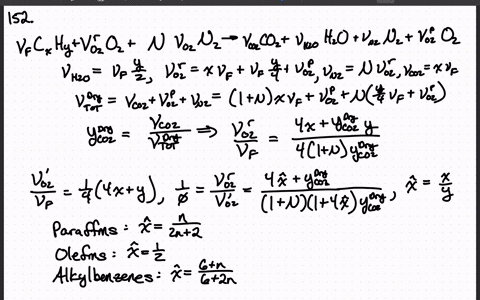 152.
ν_F C_x H_y + ν_{O2}^r O_2 + N ν_{O2} N_2 → ν_{CO2} CO_2 + ν_{H2O} H_2O + ν_{N2} N_2 + ν_{O2}^P O_2
ν_{H2O} = ν_F y/2, ν_{O2}^r = x ν_F + ν_F y/4 + ν_{O2}^P, ν_{N2} = N ν_{O2}^r, ν_{CO2} = x ν_F
ν_{TOT}^{Dry} = ν_{CO2} + ν_{O2}^P + ν_{N2} = (1+N) x ν_F + ν_{O2}^P + N(y/4 ν_F + ν_{O2}^P)
y_{CO2}^{Dry} = ν_{CO2}/ν_{TOT}^{Dry} ⇒ ν_{O2}^r/ν_F = (4x + y_{CO2}^{Dry} y)/(4(1+N) y_{CO2}^{Dry})
ν_{O2}'/ν_F = 1/4 (4x+y), 1/ϕ = ν_{O2}^r/ν_{O2}' = (4x̂ + y_{CO2}^{Dry})/((1+N)(1+4x̂) y_{CO2}^{Dry}), x̂ = x/y
Paraffins: x̂ = n/(2n+2)
Olefins: x̂ = 1/2
Alkylbenzenes: x̂ = (6+n)/(6+2n)